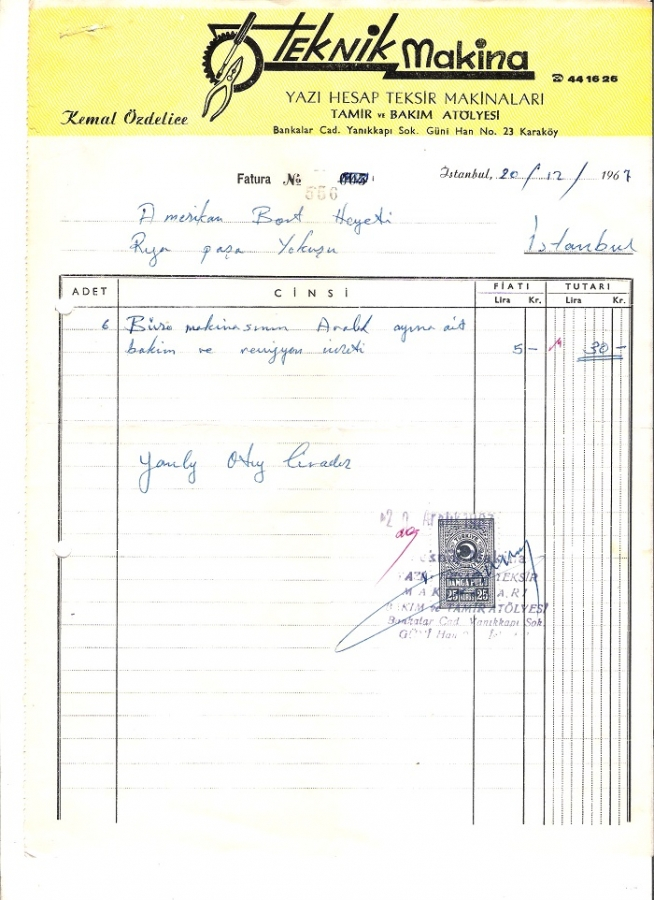 TEKNİK Makina
☎ 44 16 26
YAZI HESAP TEKSİR MAKİNALARI
Kemal Özdelice
TAMİR ve BAKIM ATÖLYESİ
Bankalar Cad. Yanıkkapı Sok. Güni Han No. 23 Karaköy
Fatura №
556
İstanbul, 20/12/1967
Amerikan Bort Heyeti
Rıza paşa Yokuşu
İstanbul
ADET CİNSİ FİATI TUTARI
Lira Kr. Lira Kr.
6 Büro makinasının Aralık ayına ait
bakım ve revizyon ücreti 5 - 30 -
Yanlız Otuz liradır
TEKSİR
BAKIM ve TAMİR ATÖLYESİ
Bankalar Cad. Yanıkkapı Sok.
Han
25 25